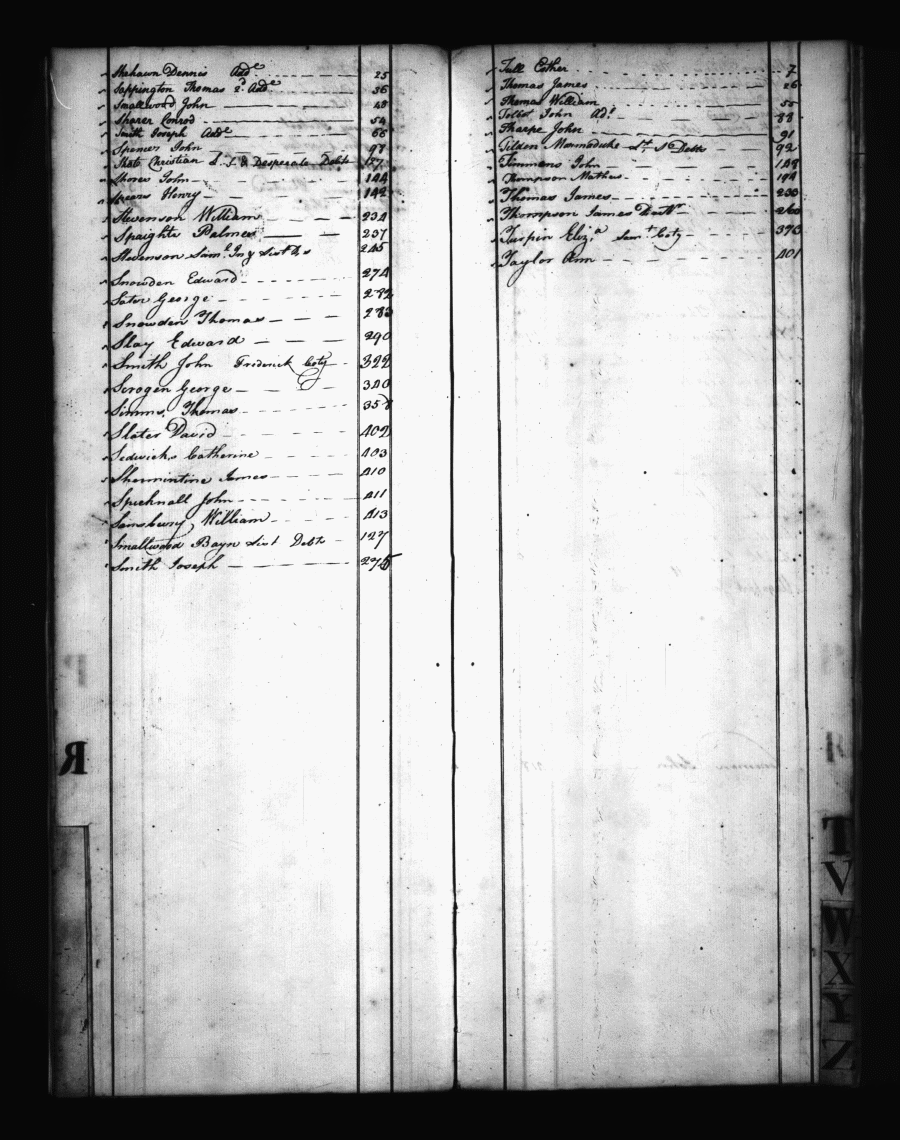 Shehawn Dennis Add.e 25
Sappington Thomas 2.d Add.e 36
Smallwood John 48
Sharer Conrod 54
Smith Joseph Add.e 66
Spencer John 98
Christian & Desperate Debts 177
Shores John 144
Spears Henry 149
Stevenson William 234
Speights Palmer 237
Stevenson Sam.l 245
Snowden Edward 274
Sater George 282
Snowden Thomas 283
Slay Edward 290
Smith John Frederick Coty 322
Scrogen George 340
Simms, Thomas 358
Slater David 402
Sedwicks Catherine 403
Shermintine James 410
Spicknall John 411
Sansbury, William 413
Smallwood Bayn Debts 127
Smith Joseph 275
Tull Esther 7
Thomas James 26
Thomas William 55
Tolbot John Ad.l 88
Tharpe John 91
Tilden Marmaduke Debts 92
Timmens John 148
Thompson Mathew 194
Thomas James 233
Thompson James Doct.r 260
Turpin Eliz.a Som.t Coty 373
Taylor Ann 401
R
T
V
W
X
Y
Z